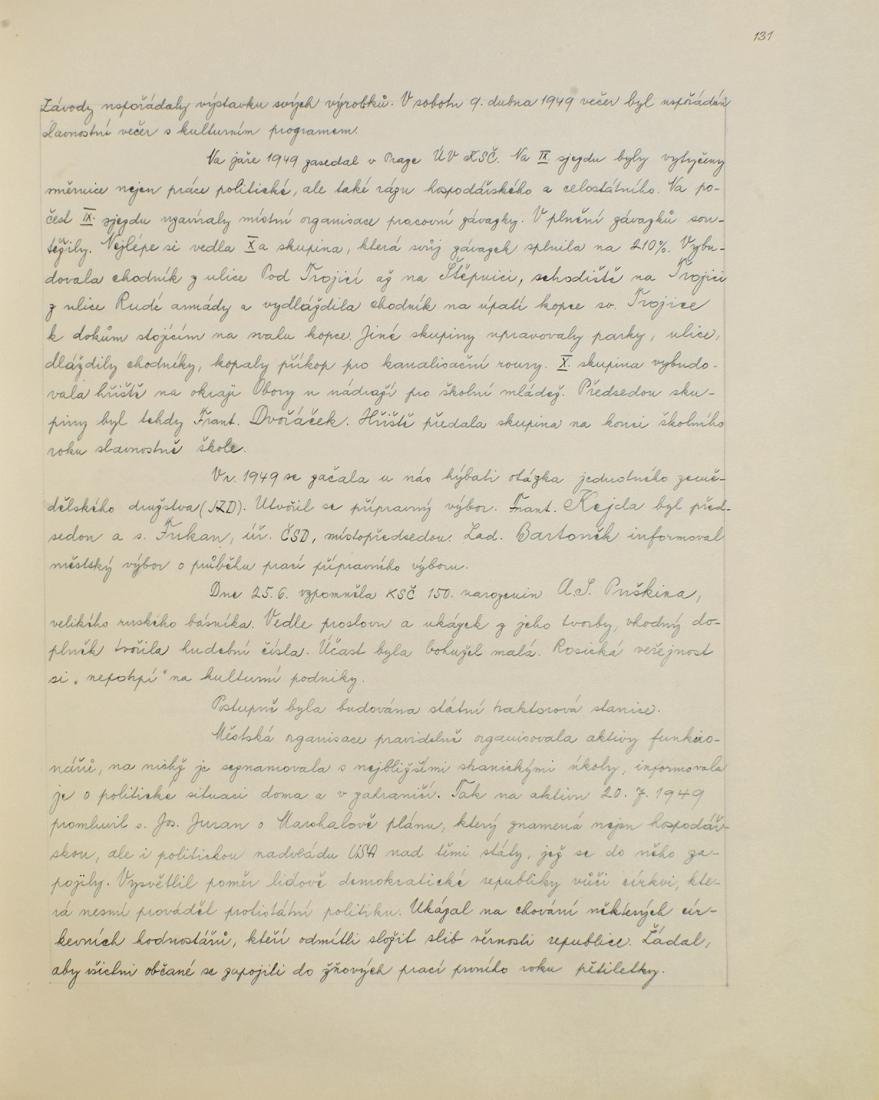 131
Závody uspořádaly výstavku svých výrobků. V sobotu 9. dubna 1949 večer byl uspořádán
slavnostní večer s kulturním programem.
Na jaře 1949 zasedal v Praze ÚV KSČ. Na IX sjezdu byly vytyčeny
směrnice nejen práce politické, ale také rázu hospodářského a celostátního. Na po-
čest IX. sjezdu uzavíraly místní organisace pracovní závazky. V plnění závazků sou-
těžily. Nejlépe si vedla X a skupina, která svůj závazek splnila na 210%. Vybu-
dovala chodník z ulice Pod Trojicí až na Štěpnici, schodiště na Trojici
z ulice Rudé armády a vydláždila chodník na úpatí kopce sv. Trojice
k dokům stojícím na svahu kopce. Jiné skupiny upravovaly parky, ulice,
dláždily chodníky, kopaly příkop pro kanalisační roury. X. skupina vybudo-
vala hřiště na okraji Obory u nádraží pro školní mládež. Předsedou sku-
piny byl tehdy Frant. Dvořáček. Hřiště předala skupina na konci školního
roku slavnostně škole.
V r. 1949 se začala u nás hýbati otázka jednotného země-
dělského družstva (JZD). Utvořil se přípravný výbor. Frant. Kejda byl před-
sedou a s. Frikan, úř. ČSD, místopředsedou. Lad. Bartoněk informoval
městský výbor o průběhu prací přípravního výboru.
Dne 25.6. vzpomněla KSČ 150. narozenin A.S. Puškina,
velikého ruského básníka. Vedle proslovu a ukázek z jeho tvorby, vhodný do-
plněk tvořila hudební čísla. Účast byla bohužel malá. Rosická veřejnost
si „nepotrpí" na kulturní podniky.
Postupně byla budována státní traktorová stanice.
Městská organisace pravidelně organisovala aktivy funkcio-
nářů, na nichž je seznamovala s nejbližšími stranickými úkoly, informovala
je o politické situaci doma a v zahraničí. Tak na aktivu 20. 7. 1949
promluvil s. Jos. Juran o Marshalově plánu, který znamená nejen hospodář-
skou, ale i politickou nadvládu USA nad těmi státy, jež se do něho za-
pojily. Vysvětlil poměr lidově demokratické republiky vůči církvi, kte-
rá nesmí provádět protistátní politiku. Ukázal na chování některých cír-
kevních hodnostářů, kteří odmítli složit slib věrnosti republice. Žádal,
aby všichni občané se zapojili do žňových prací prvního roku pětiletky.